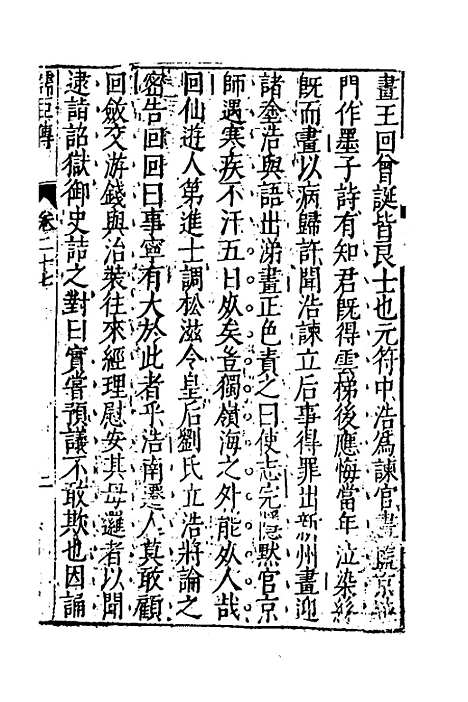 畫王回曾誕皆良士也元符中浩爲諫官畫監京城
門作墨子詩有知君旣得雲梯後應悔當年泣染絲
旣而畫以病歸許聞浩諫立后事得罪出新州畫迎
諸塗浩與語出涕畫正色責之曰使志完隱默官京
師遇寒疾不汗五日死矣豈獨嶺海之外能死人哉
回仙遊人第進士調松滋令皇后劉氏立浩將論之
密告回回曰事寧有大於此者乎浩南遷人莫敢顧
回斂交游錢與治裝往來經理慰安其母邏者以聞
逮詣詔獄御史詰之對曰實嘗預議不敢欺也因誦
儒臣傳
卷二十七
二